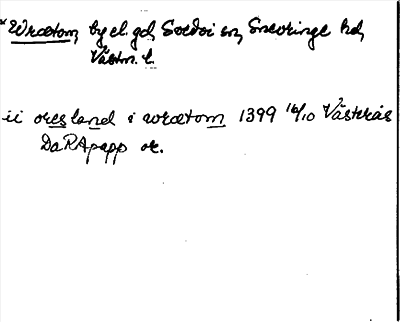 *Wrætom, by el. gd, Svedvi sn, Snevringe hd,
Västm. l.
ii øresland i wrætom 1399 16/10 Västerås
DaRApapp or.